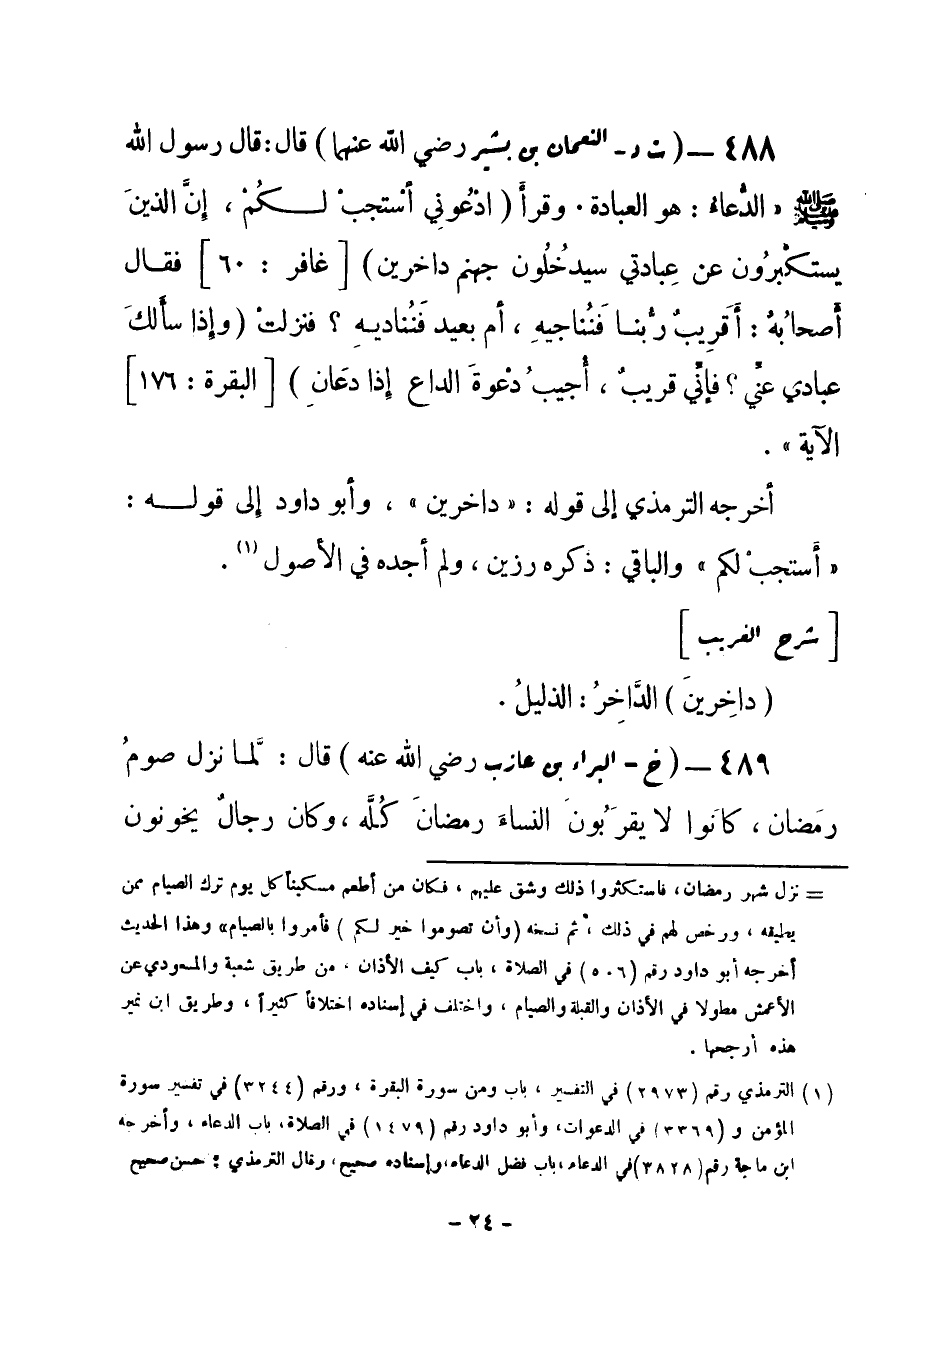 ٤٨٨ ــ ( ت د ـ النعمان بن بشير رضي الله عنهما ) قال : قال رسول الله
ﷺ « الدُّعاءُ : هو العبادة . وقرأَ ( ادْعُوني أَسْتجبْ لــكُمْ ، إِنَّ الذينَ
يستكْبرُون عن عِبادتي سيدخُلُون جهنم داخرين ) [ غافر : ٦٠ ] فقــال
أَصحابُهُ : أَقَرِيبٌ رَبُّنــا فَنُناجيهِ ، أم بعيد فَنُناديــهِ ؟ فنزلتْ ( وإذا سأَلكَ
عبادي عنِّي ؟ فإنِّي قريبٌ ، أُجيبُ دعْوةَ الداع إِذا دعَانِ ) [ البقرة : ١٧٦ ]
الآية » .
أخرجه الترمذي إلى قوله : « داخرين » ، وأبو داود إلى قولــه :
« أَستجبْ لكم » والباقي : ذكره رزين ، ولم أجده في الأصول (١) .
[ شرح الغريب ]
( داخِرينَ ) الدَّاخِرُ : الذليلُ .
٤٨٩ ــ ( خ - البراء بن عازب رضي الله عنه ) قال : لَّما نزل صومُ
رمَضان ، كانوا لا يقرَبُونَ النساءَ رمضانَ كُلَّه ، وكان رجالٌ يخونون
= نزل شهر رمضان، فاستكثروا ذلك وشق عليهم ، فكان من أطعم مسكيناً كل يوم ترك الصيام ممن
يطيقه ، ورخص لهم في ذلك ، ثم نسخه (وأن تصوموا خير لـكم ) فأمروا بالصيام» وهذا الحديث
أخرجه أبو داود رقم (٥٠٦) في الصلاة ، باب كيف الأذان ، من طريق شعبة والمسعودي عن
الأعمش مطولا في الأذان والقبلة والصيام ، واختلف في إسناده اختلافاً كثيراً ، وطريق ابن نمير
هذه أرجحها .
(١) الترمذي رقم (٢٩٧٣) في التفسير ، باب ومن سورة البقرة ، ورقم (٣٢٤٤) في تفسير سورة
المؤمن و (٣٣٦٩) في الدعوات، وأبو داود رقم (١٤٧٩) في الصلاة، باب الدعاء ، وأخرجه
ابن ماجة رقم (٣٨٢٨) في الدعاء ، باب فضل الدعاء، وإسناده صحيح، وقال الترمذي : حسن صحيح
- ٢٤ -